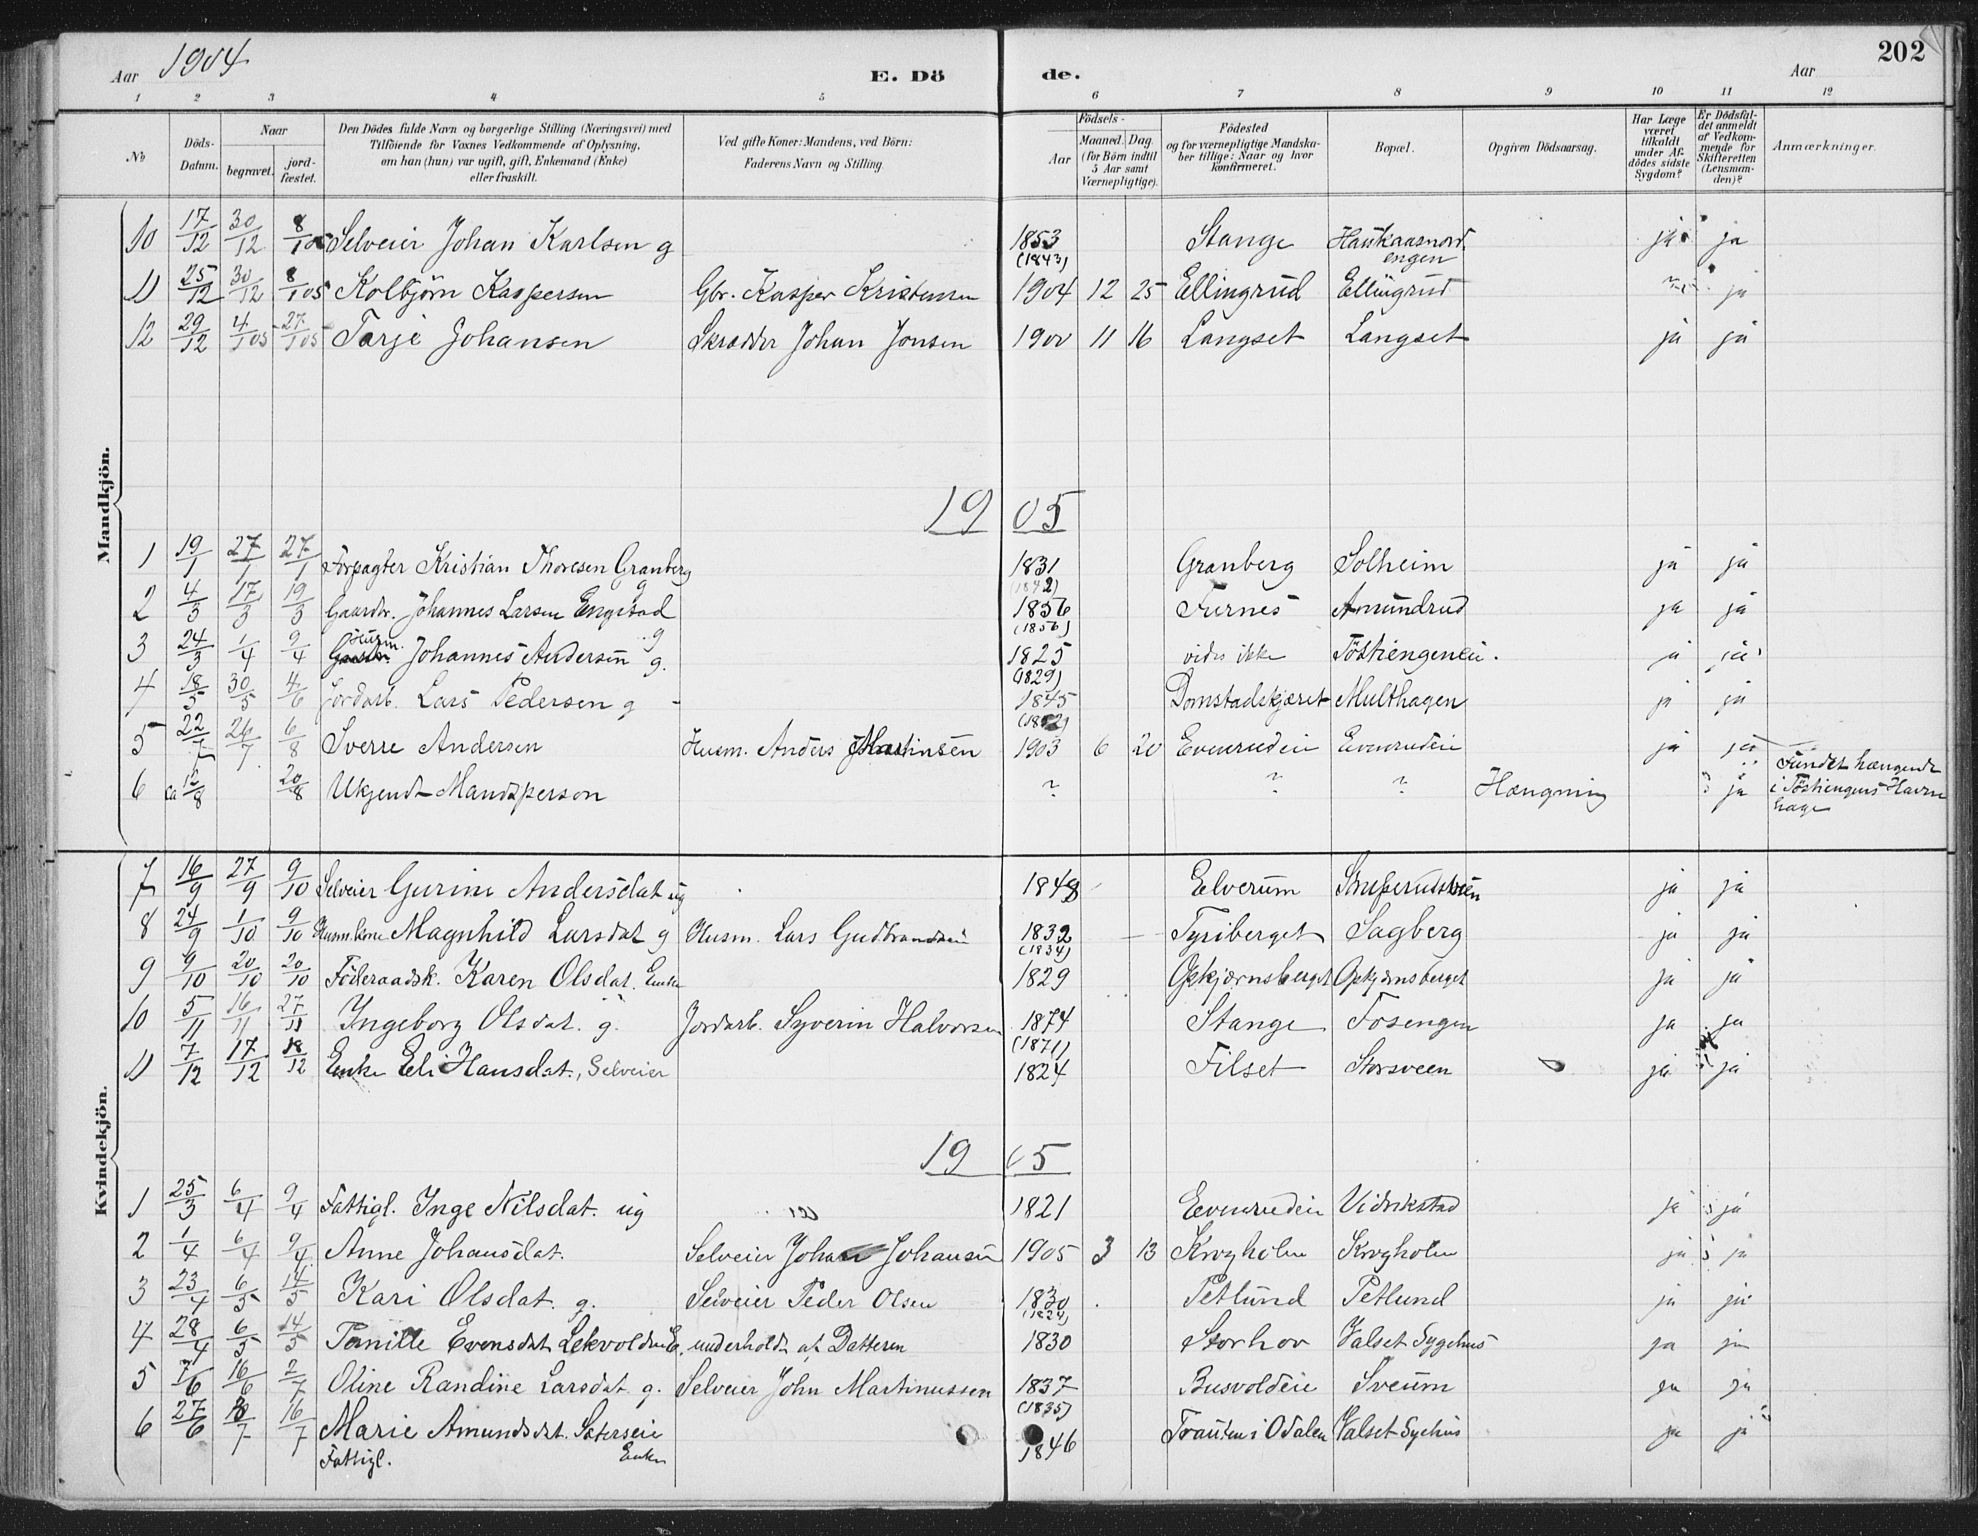 202
Aar 1904 E. Dö de. Aar
1 2 3 4 5 6 7 8 9 10 11 12
No
Döds-Datum.
Naar begravet. jord-fæstet.
Den Dödes fulde Navn og borgerlige Stilling (Næringsvei) med Tilföiende for Voxnes Vedkommende af Oplysning, om han (hun) var ugift, gift, Enkemand (Enke) eller fraskilt.
Ved gifte Koner: Mandens, ved Börn: Faderens Navn og Stilling.
Födsels- Aar Maaned. Dag. (for Börn indtil 5 Aar samt Værnepligtige).
Födested og for værnepligtige Mandskaber tillige: Naar og hvor konfirmeret.
Bopæl.
Opgiven Dödsaarsag.
Har Læge været tilkaldt under Afdödes sidste Sygdom?
Er Dödsfaldet anmeldt af Vedkommende for Skifteretten (Lensmanden)?
Anmærkninger.
Mandkjön.
10 17/12 30/12 8/1 05 Selveier Johan Karlsen g 1853 (1843) Stange Haukaasnordengen ja ja
11 25/12 30/12 8/1 05 Kolbjörn Kaspersen Gbr. Kasper Kristensen 1904 12 25 Ellingrud Ellingrud nei ja
12 29/12 4/1 05 27/1 05 Tarje Johansen Skrædder Johan Jonsen 1900 11 16 Langset Langset ja ja
1905
1 19/1 27/1 27/1 Forpagter Kristian Thoresen Granberg g 1831 (1842) Granberg Solheim ja ja
2 4/3 17/3 19/3 Gaardbr. Johannes Larsen Engstad g 1856 (1856) Furnes Amundrud ja ja
3 24/3 1/4 9/4 Husm. Johannes Andersen g. 1825 (1829) vides ikke Töstiengeneie. ja ja
4 18/5 30/5 4/6 Jordarb. Lars Pedersen g 1845 Domstadskjæret Multhagen ja ja
5 22/7 26/7 6/8 Sverre Andersen Husm. Anders Martinsen 1903 6 20 Evenrudeie Evenrudeie ja ja
6 ca 12/8 20/8 Ukjendt Mandsperson ? ? ? Hængning ja Fundet hængende i Töstiengens Havnehage
Kvindekjön.
7 16/9 27/9 9/10 Selveier Gurine Andersdat ug 1848 Elverum ja ja
8 24/9 1/10 9/10 Husm.kone Magnhild Larsdat g Husm. Lars Gudbrandsen 1832 (1834) Tyriberget Sagberg ja ja
9 9/10 20/10 20/10 Föderaadsk. Karen Olsdat. Enke 1829 Gjskjærnsberget Opkjærnsberget ja ja
10 5/11 16/11 27/11 Ingeborg Olsdat. g. Jordarb. Syverin Halvorsen 1874 (1871) Stange Fosengen ja ja
11 7/12 17/12 18/12 Enke Eli Hansdat., Selveier 1824 Filset Storsveen ja ja
1905
1 25/3 6/4 9/4 Fattigl. Inge Nilsdat. ug 1821 Evenrudeie Vidrikstad ja ja
2 1/4 6/4 9/4 Anne Johansdat. Selveier Johan Johansen 1905 3 13 Krogholm Krogholm ja ja
3 23/4 6/5 14/5 Kari Olsdat. g. Selveier Peder Olsen 1830 (1824) Petlund Petlund ja ja
4 28/4 6/5 14/5 Pernille Evensdat Lekvoldeie E. underholdt af Datteren 1830 Storhov Valset Sygehus ja ja
5 7/6 16/6 2/7 Oline Randine Larsdat. g. Selveier John Martinussen 1837 (1835) Busvoldeie Sveum ja ja
6 27/6 8/7 16/7 Marie Amundsdat. Sæterseie Enke Fattigl. 1846 Trauten i Odalen Valset Sychus ja ja